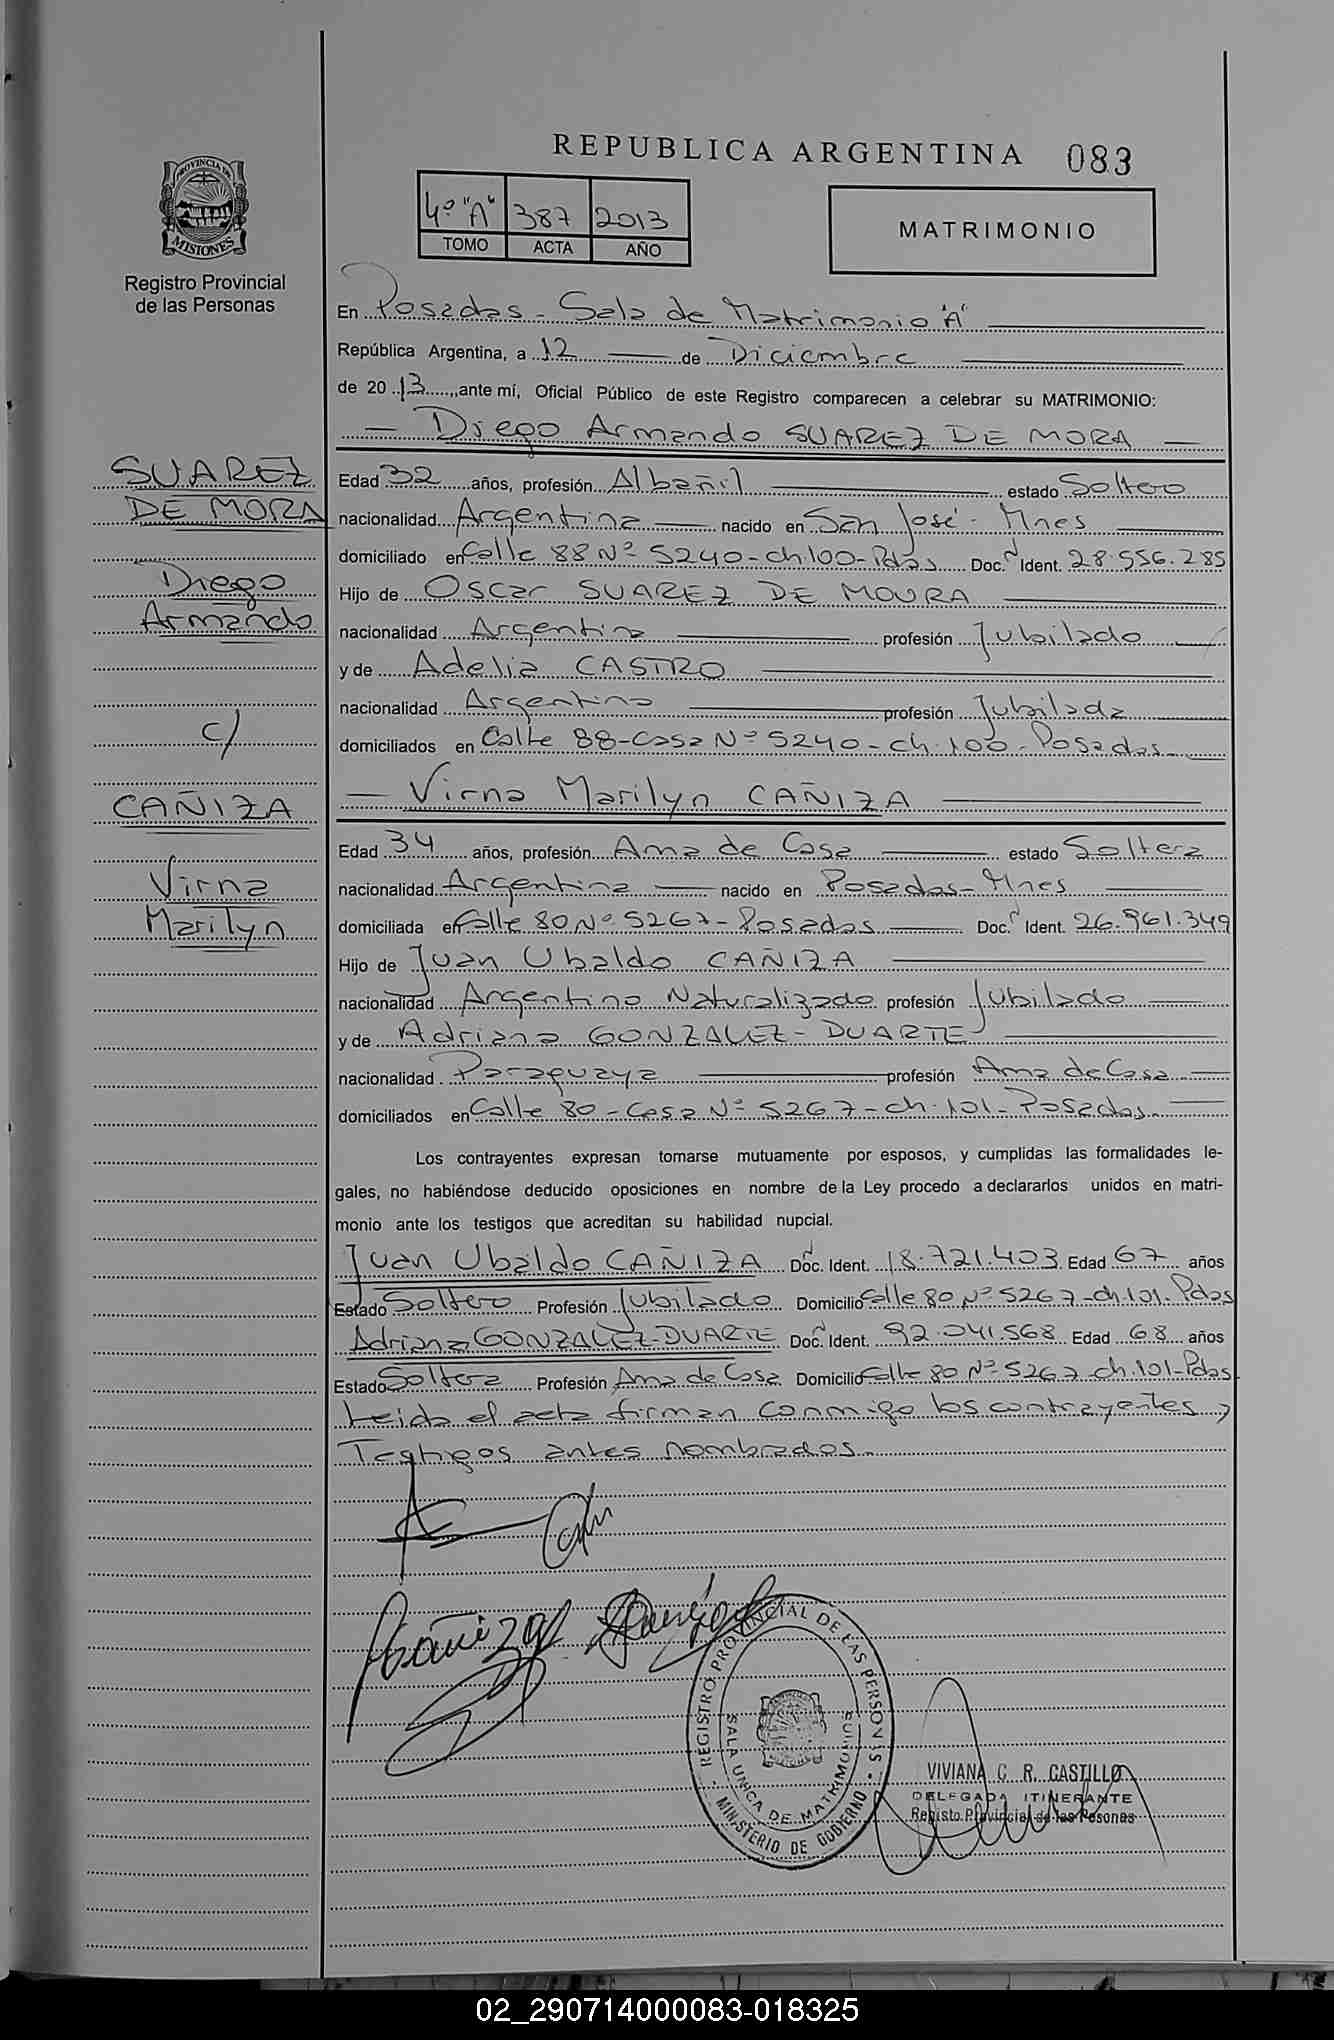 REPUBLICA ARGENTINA 083
PROVINCIA DE
MISIONES
Registro Provincial
de las Personas
4º "A" 387 2013
TOMO ACTA AÑO
MATRIMONIO
En Posadas - Sala de Matrimonio "A"
República Argentina, a 12 de Diciembre
de 20 13, ante mí, Oficial Público de este Registro comparecen a celebrar su MATRIMONIO:
— Diego Armando SUAREZ DE MORA —
SUAREZ
DE MORA
Diego
Armando
c/
CAÑIZA
Virna
Marilyn
Edad 32 años, profesión Albañil estado Soltero
nacionalidad Argentina nacido en San José - Mnes
domiciliado en Calle 88 Nº 5240 - ch.100 - Pdas Doc. N Ident. 28.556.285
Hijo de Oscar SUAREZ DE MOURA
nacionalidad Argentina profesión Jubilado
y de Adelia CASTRO
nacionalidad Argentina profesión Jubilada
domiciliados en Calle 88 - Casa Nº 5240 - ch.100 - Posadas
— Virna Marilyn CAÑIZA
Edad 34 años, profesión Ama de Casa estado Soltera
nacionalidad Argentina nacido en Posadas - Mnes
domiciliada en Calle 80 Nº 5267 - Posadas Doc. N Ident. 26.961.349
Hijo de Juan Ubaldo CAÑIZA
nacionalidad Argentino Naturalizado profesión Jubilado
y de Adriana GONZALEZ - DUARTE
nacionalidad Paraguaya profesión Ama de Casa
domiciliados en Calle 80 - Casa Nº 5267 - ch.101 - Posadas
Los contrayentes expresan tomarse mutuamente por esposos, y cumplidas las formalidades le-
gales, no habiéndose deducido oposiciones en nombre de la Ley procedo a declararlos unidos en matri-
monio ante los testigos que acreditan su habilidad nupcial.
Juan Ubaldo CAÑIZA Doc. N Ident. 18.721.403 Edad 67 años
Estado Soltero Profesión Jubilado Domicilio Calle 80 Nº 5267 - ch.101 - Pdas
Adriana GONZALEZ - DUARTE Doc. N Ident. 92.041.568 Edad 68 años
Estado Soltera Profesión Ama de Casa Domicilio Calle 80 Nº 5267 - ch.101 - Pdas
Leida el acta firman conmigo los contrayentes y
Testigos antes nombrados
Cañiza
REGISTRO PROVINCIAL DE LAS PERSONAS
SALA UNICA DE MATRIMONIO
MINISTERIO DE GOBIERNO
VIVIANA C. R. CASTILLO
DELEGADA ITINERANTE
Registo Provincial de las Pesonas
02_290714000083-018325